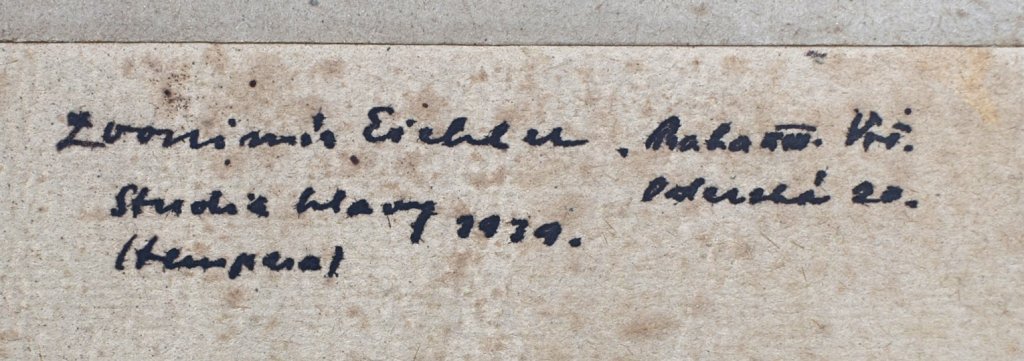 Zvonimír Eichler, Praha XIII. Vrš.
Studie hlavy 1939. Oderská 20.
(tempera)